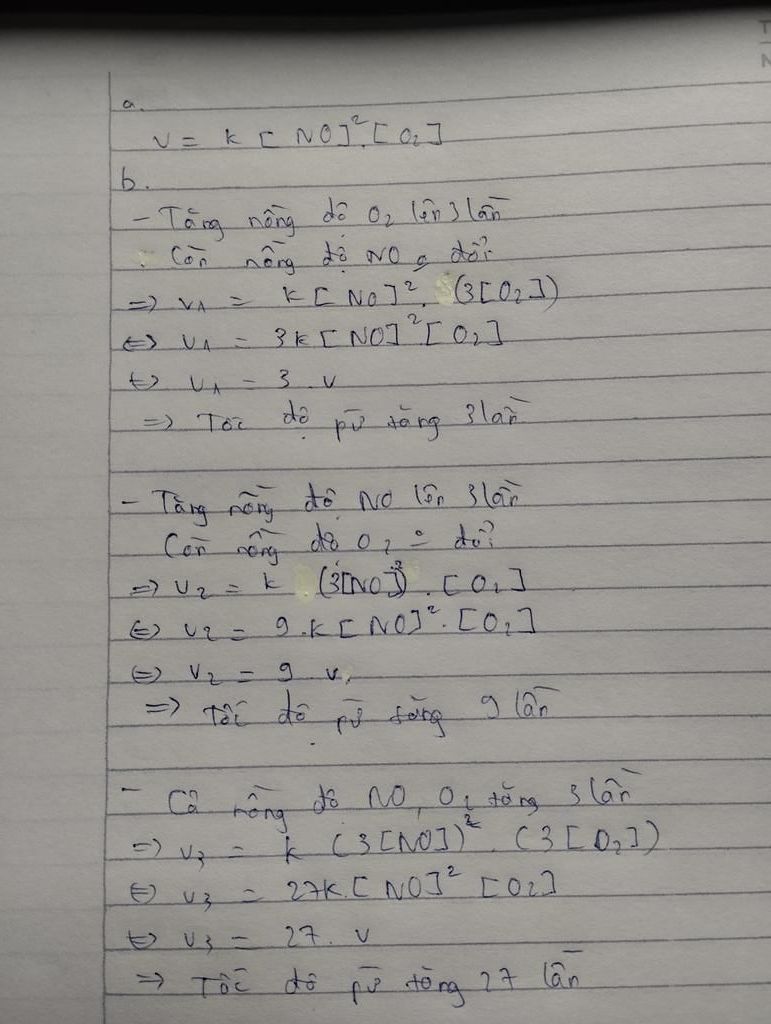 a.
v = k [NO]². [O₂]
b.
- Tăng nồng độ O₂ lên 3 lần
Còn nồng độ NO đổi
=> v₁ = k [NO]². (3[O₂])
<=> v₁ = 3k [NO]² [O₂]
<=> v₁ = 3 . v
=> Tốc độ pứ tăng 3 lần
- Tăng nồng độ NO lên 3 lần
Còn nồng độ O₂ đổi
=> v₂ = k (3[NO])² . [O₂]
<=> v₂ = 9.k [NO]². [O₂]
<=> v₂ = 9 v
=> Tốc độ pứ tăng 9 lần
- Cả nồng độ NO, O₂ tăng 3 lần
=> v₃ = k (3[NO])². (3[O₂])
<=> v₃ = 27k.[NO]² [O₂]
<=> v₃ = 27. v
=> Tốc độ pứ tăng 27 lần
T
N